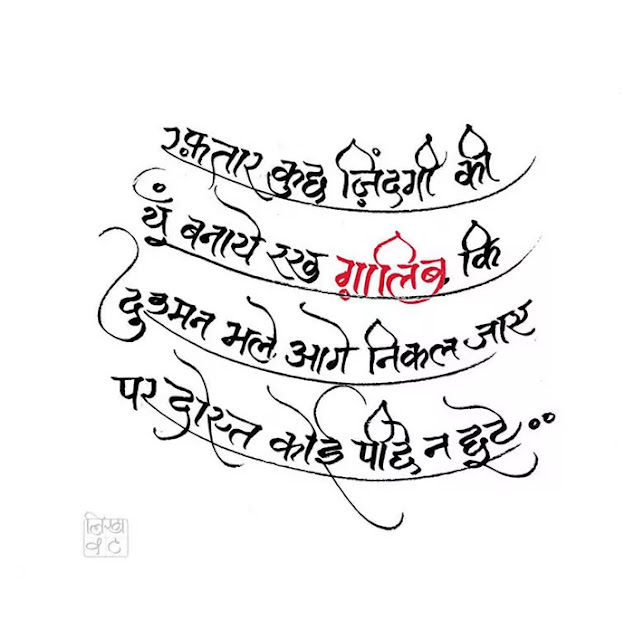 रफ़्तार कुछ ज़िंदगी की
यूँ बनाये रख ग़ालिब कि
दुश्मन भले आगे निकल जाए
पर दोस्त कोई पीछे न छूटे..